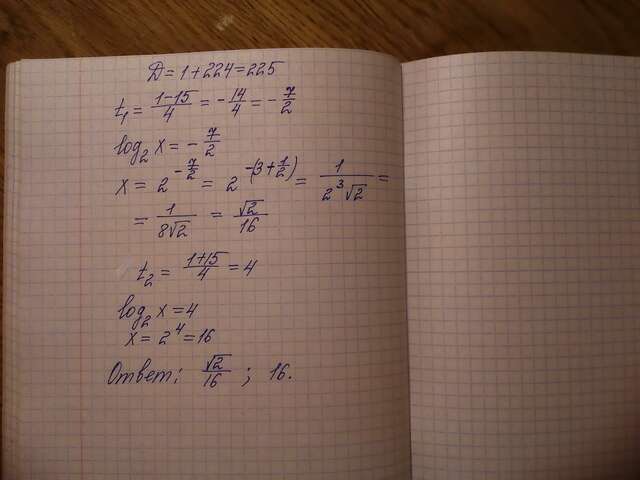 D = 1 + 224 = 225
t₁ = (1-15)/4 = -14/4 = -7/2
log₂ x = -7/2
x = 2^(-7/2) = 2^(-(3+1/2)) = 1/(2³√2) =
= 1/(8√2) = √2/16
t₂ = (1+15)/4 = 4
log₂ x = 4
x = 2⁴ = 16
Ответ: √2/16 ; 16.